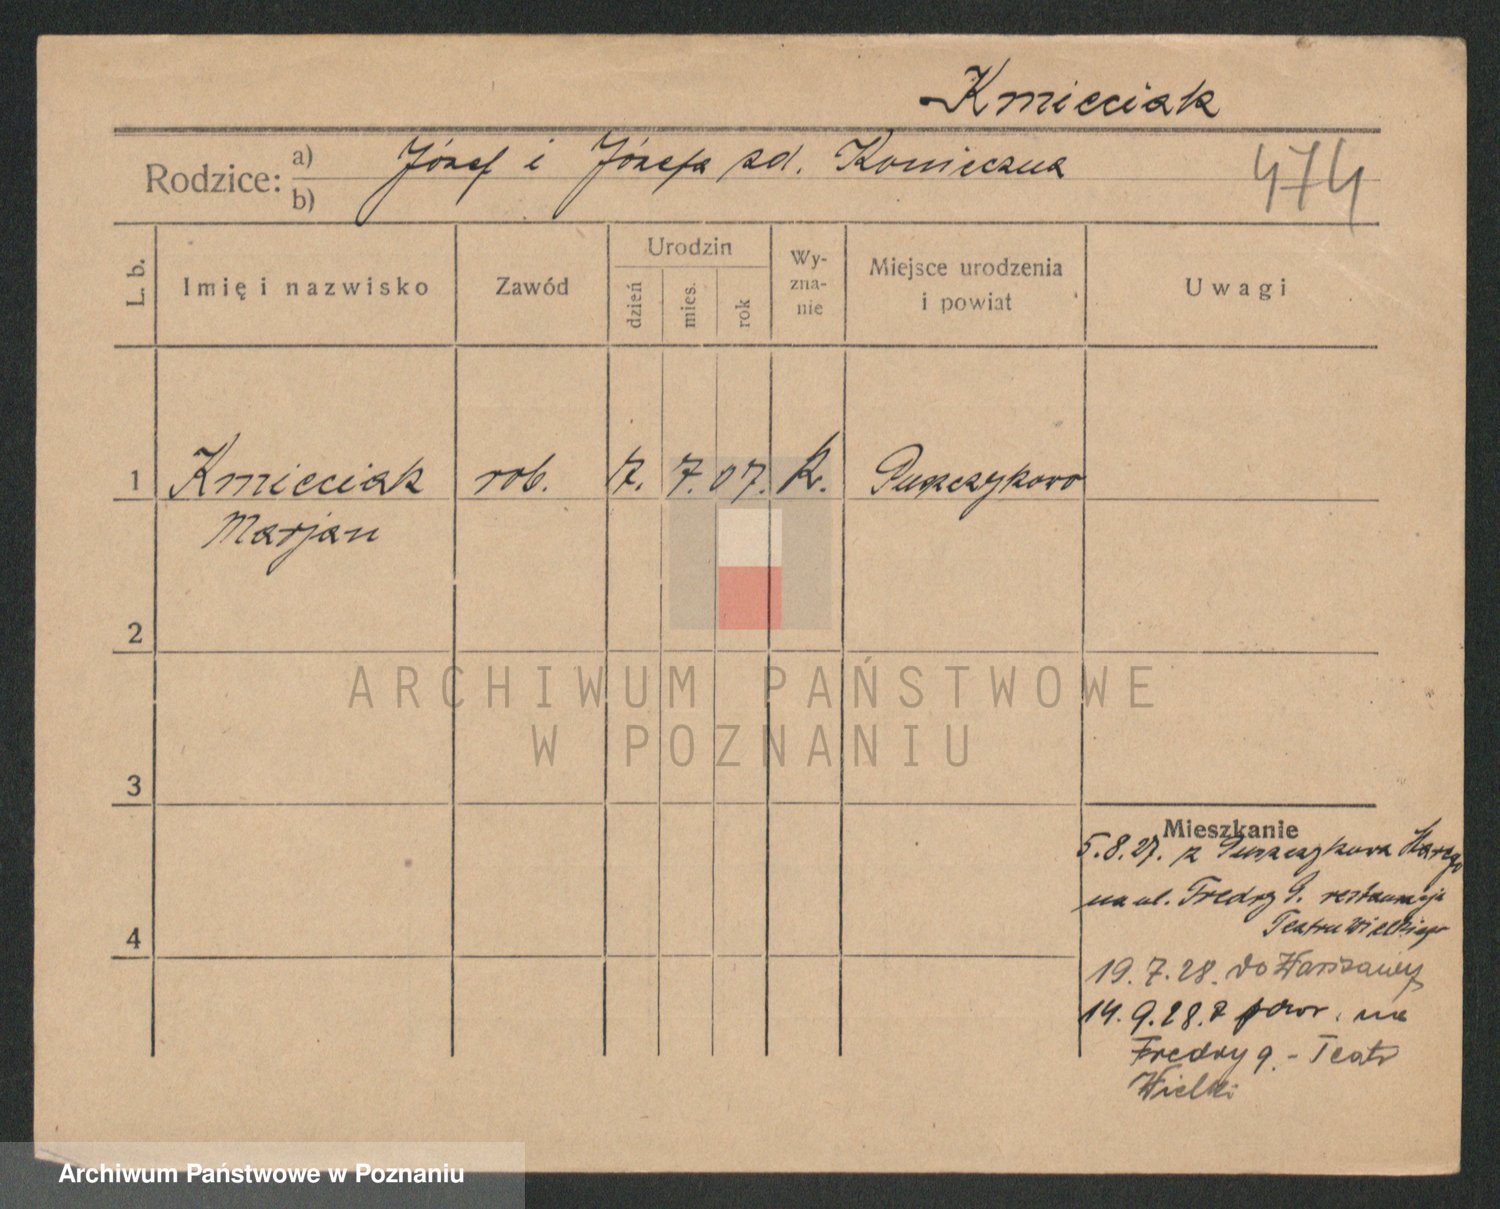 Kmieciak
Rodzice: a) Józef i Józefa zd. Konieczna
b)
474
L. b.
Imię i nazwisko
Zawód
Urodzin
dzień
mies.
rok
Wy-
zna-
nie
Miejsce urodzenia
i powiat
Uwagi
1 Kmieciak rob. 7. 7. 07. k. Puszczykowo
Marjan
2
ARCHIWUM PAŃSTWOWE
W POZNANIU
3
4
Mieszkanie
5.8.27. z Puszczykowa Starego
na ul. Fredry 9. restauracja
Teatru Wielkiego
19.7.28. do Warszawy
14.9.28. z powr. na
Fredry 9. - Teatr
Wielki
Archiwum Państwowe w Poznaniu